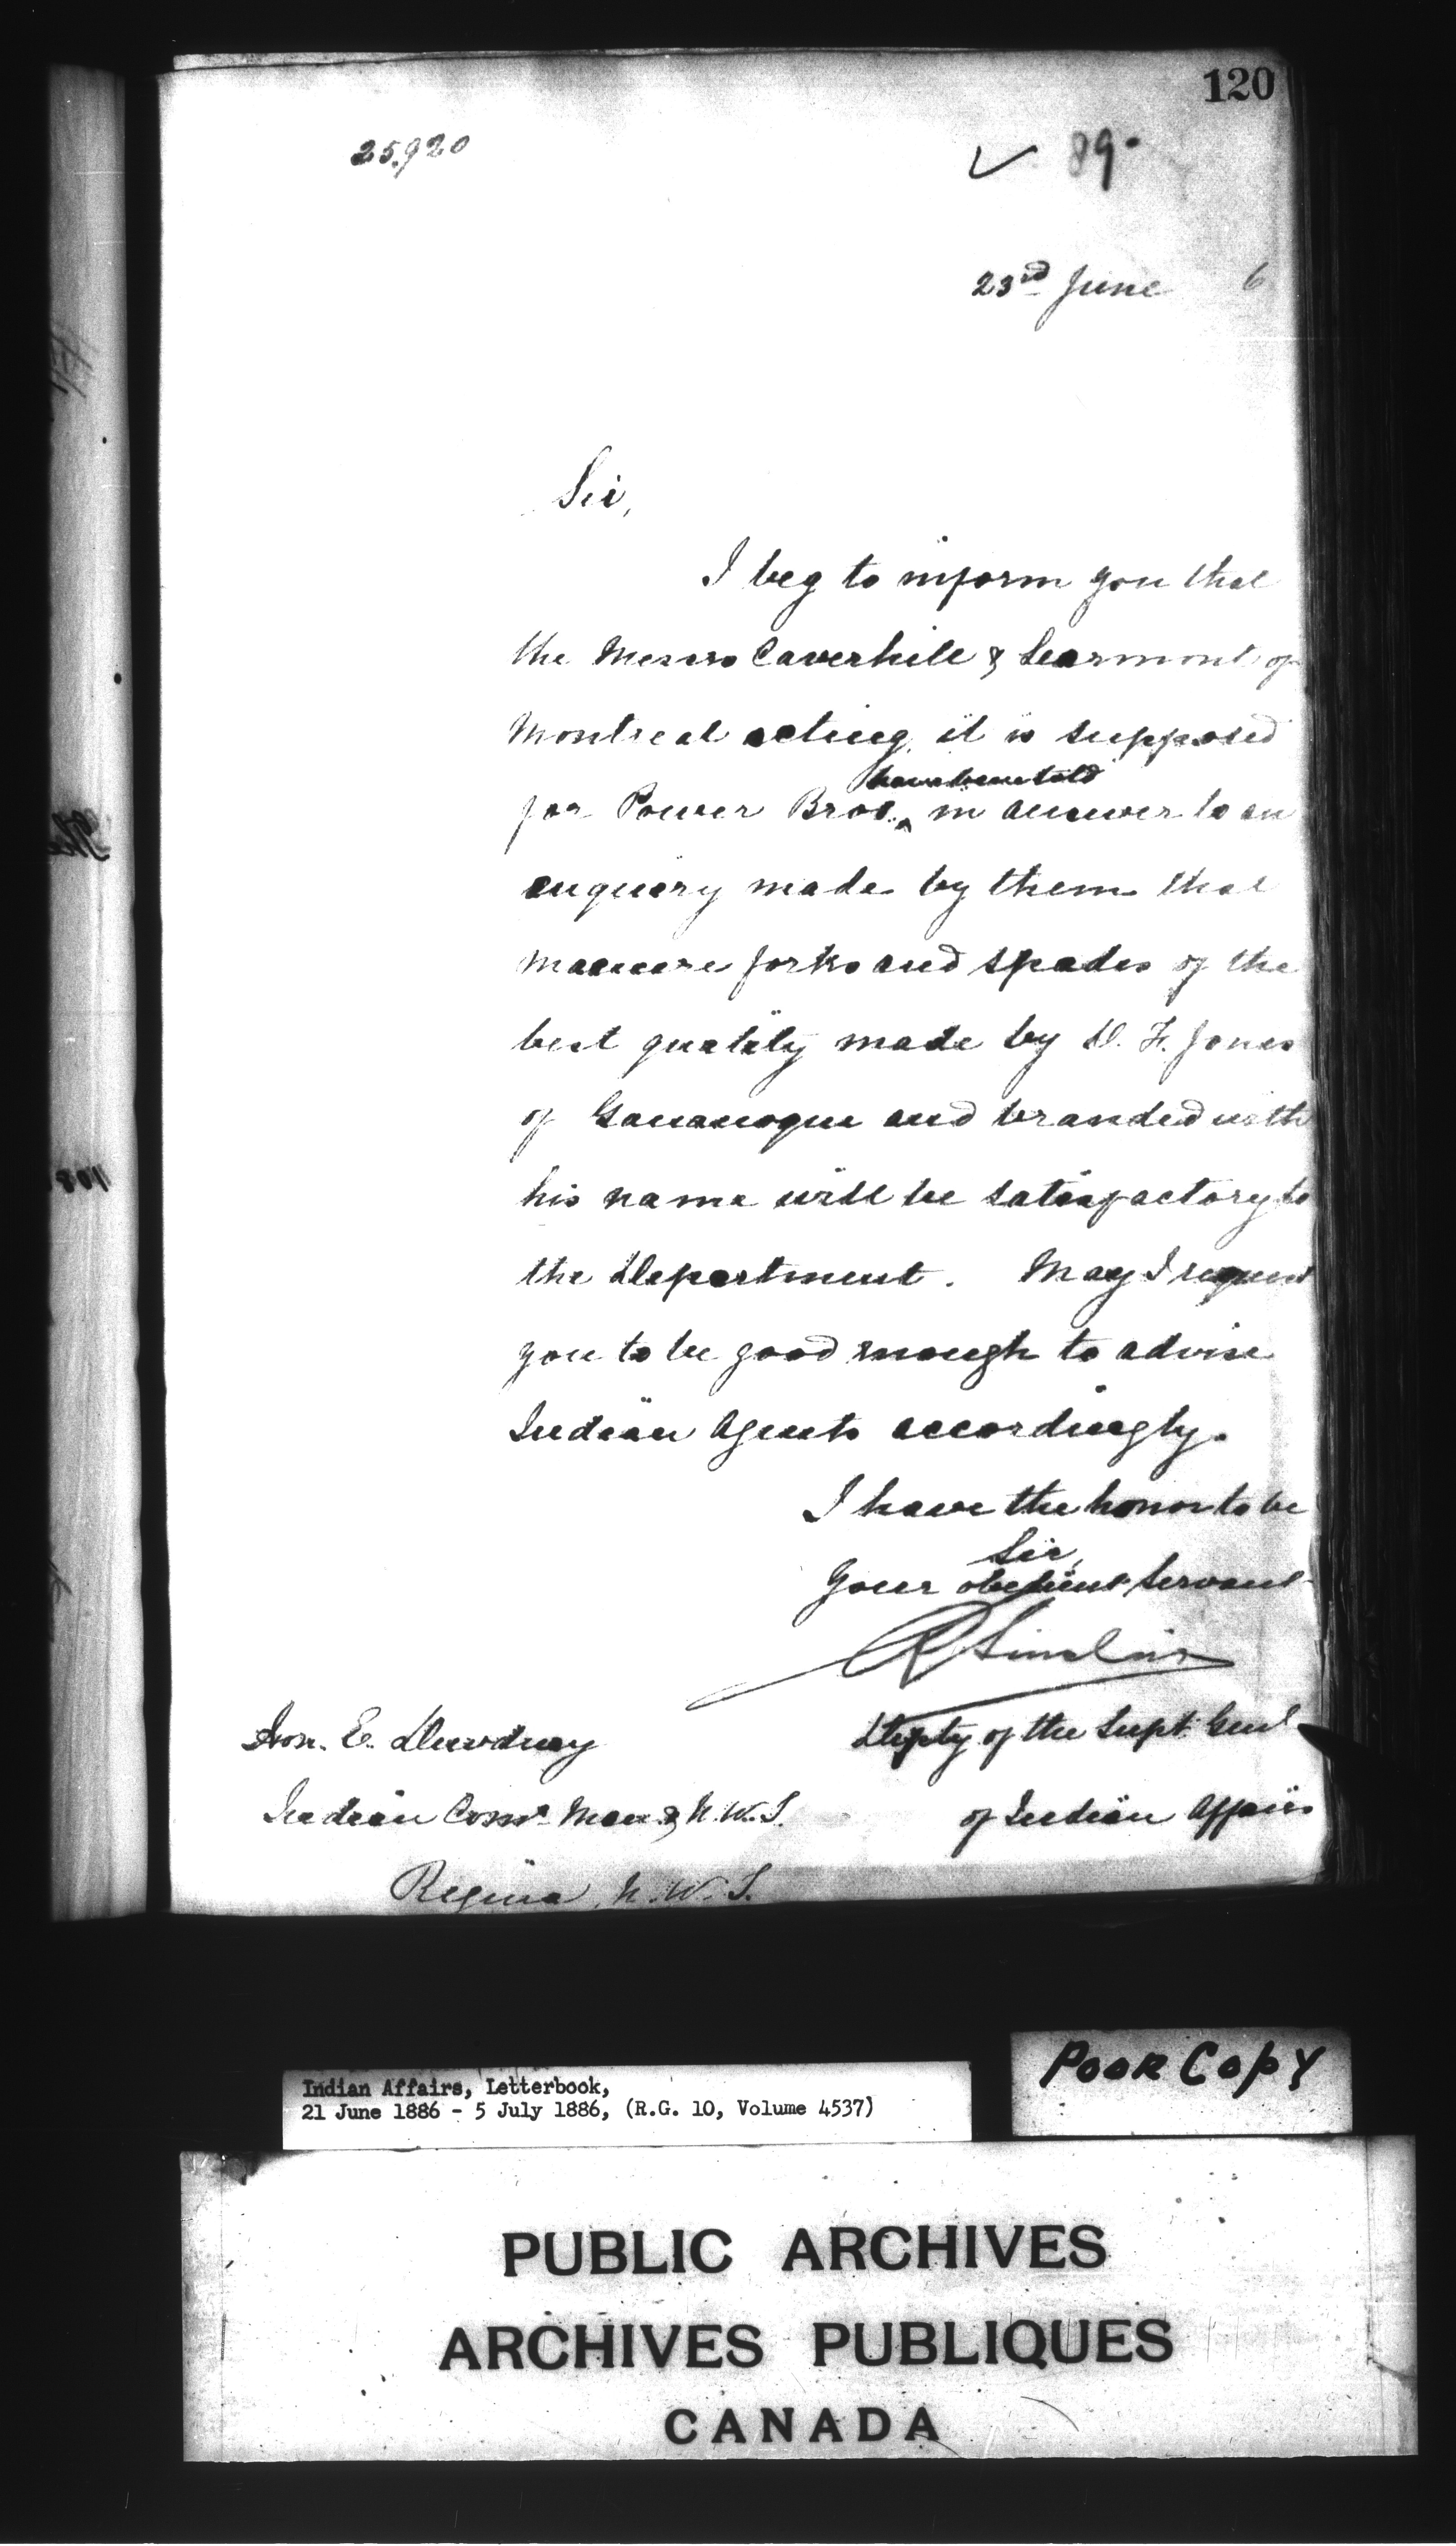 120
25,920
89.
23rd June 6
Sir,
I beg to inform you that
the Messrs Caverhill & Learmont of
Montreal acting, it is supposed
for Power Bros. ^ have been told in answer to an
enquiry made by them that
manure forks and spades of the
best quality made by D. F. Jones
of Gananoque and branded with
his name will be satisfactory to
the Department. May I request
you to be good enough to advise
Indian Agents accordingly.
I have the honor to be
Sir,
Your obedient servant
R Sinclair
Depty of the Supt. Genl
of Indian Affairs
Hon. E. Dewdney
Indian Comr. Man. & N.W.T.
Regina, N.W.T.
POOR COPY
Indian Affairs, Letterbook,
21 June 1886 - 5 July 1886, (R.G. 10, Volume 4537)
PUBLIC ARCHIVES
ARCHIVES PUBLIQUES
CANADA